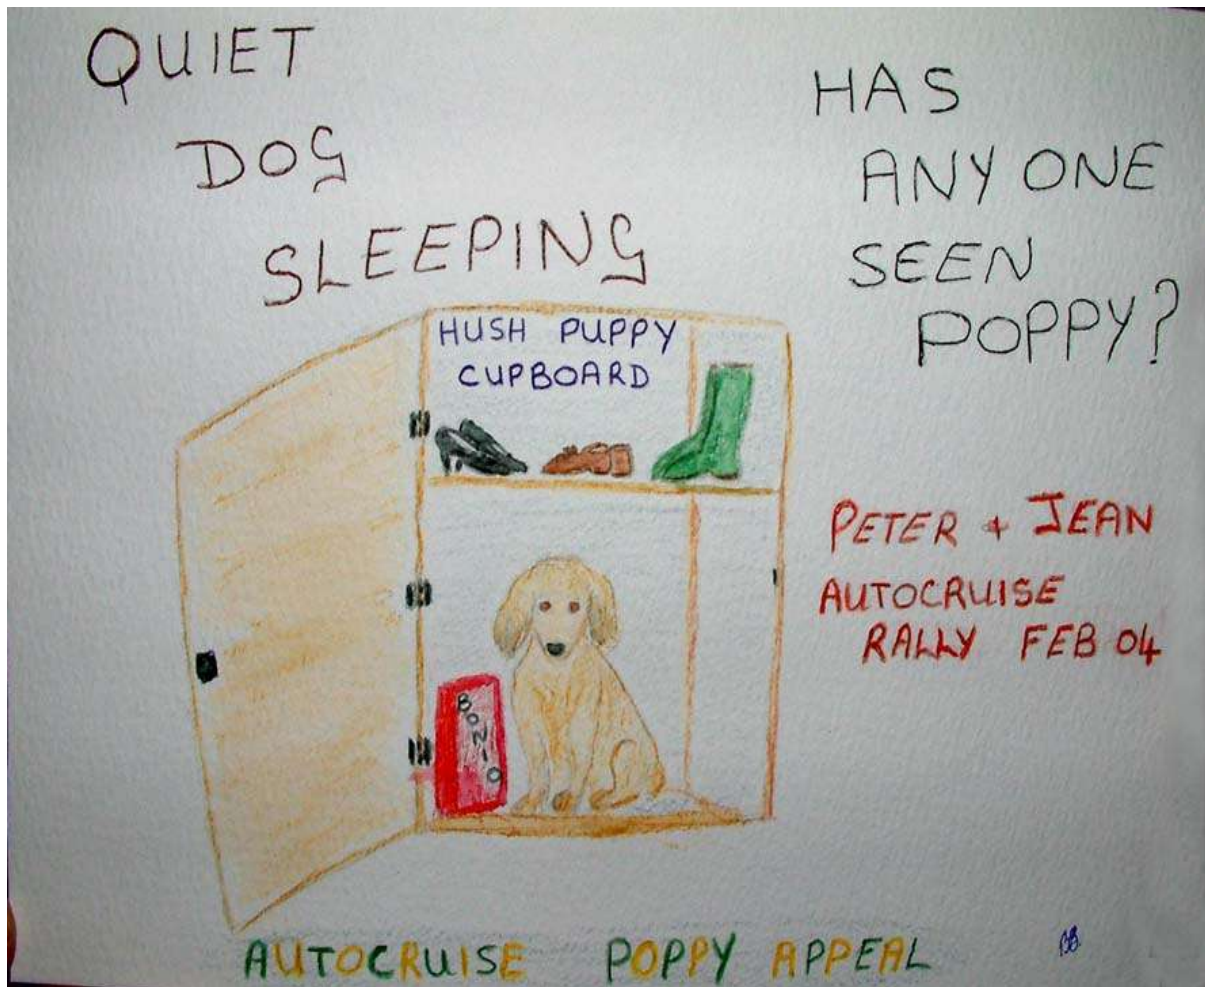 QUIET
DOG
SLEEPING
HAS
ANY ONE
SEEN
POPPY?
HUSH PUPPY
CUPBOARD
PETER + JEAN
AUTOCRUISE
RALLY FEB 04
BONIO
AUTOCRUISE POPPY APPEAL